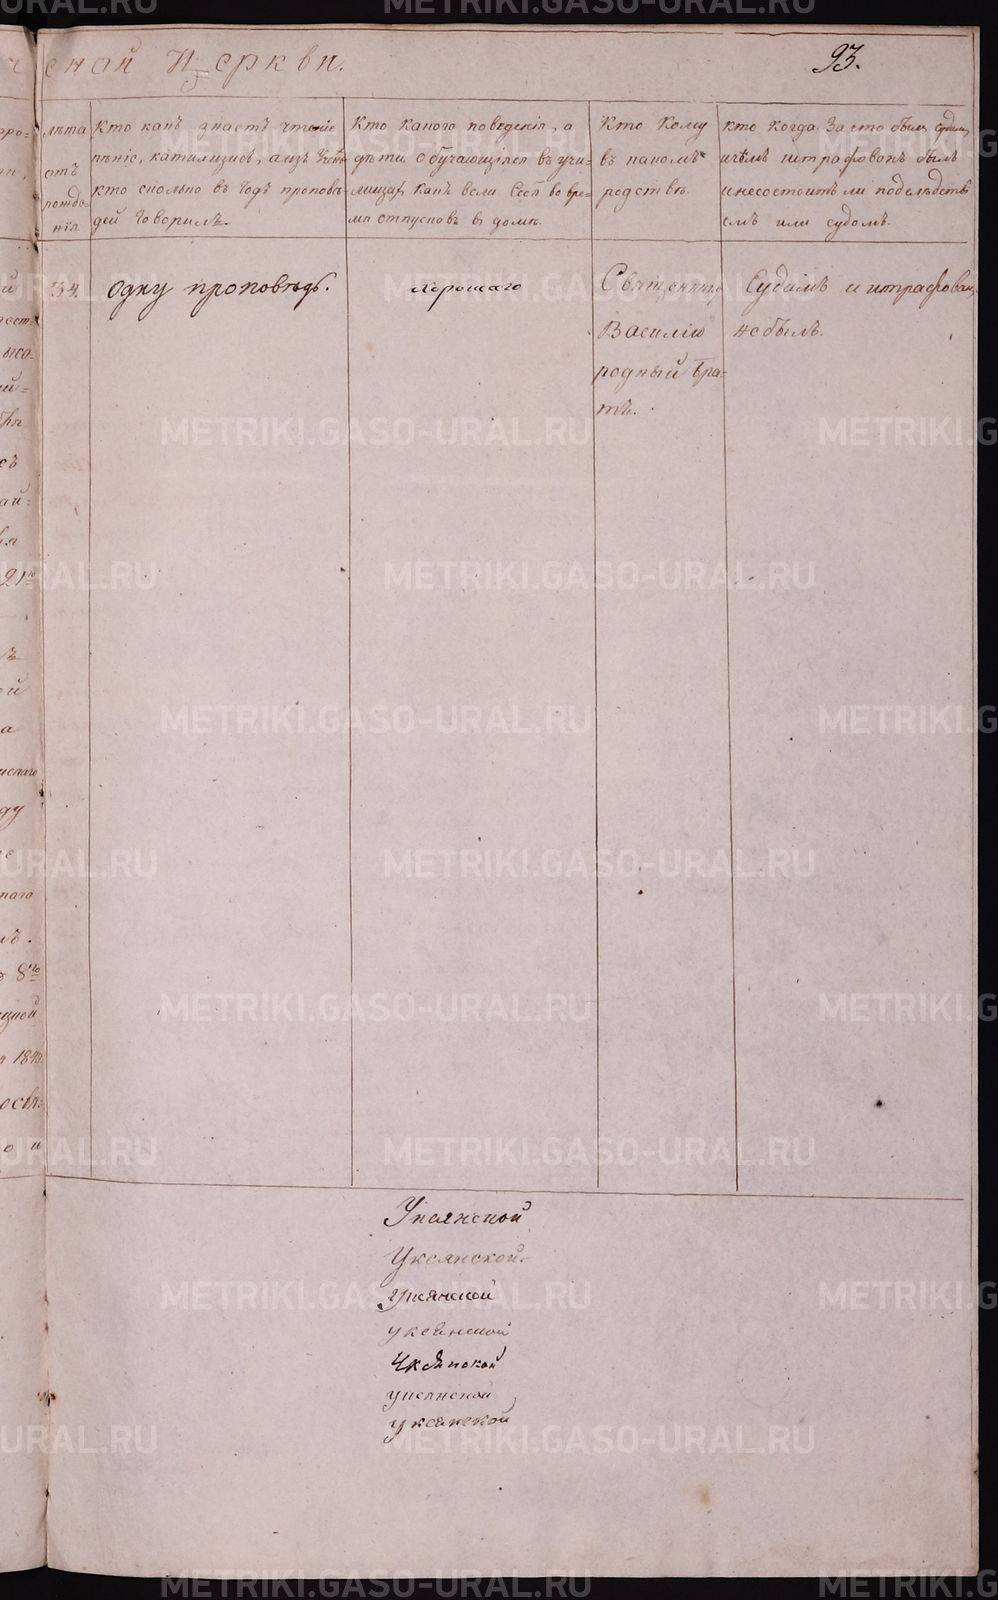 сной Церкви.
93.
лѣта отъ рожде- нія.
Кто какъ знаетъ чтеніе
пѣніе, катихизисъ, а изъ
кто сколько въ годъ проповѣ-
дей говорилъ.
Кто какого поведенія, а
дѣти обучающіеся въ учи-
лищахъ какъ вели себя во вре-
мя отпусковъ въ домы.
Кто кому
въ какомъ
родствѣ
кто когда за что былъ судимъ,
и чѣмъ штрафованъ былъ
и не состоитъ ли подъ слѣдстві-
емъ или судомъ.
34.
одну проповѣдь.
хорошаго
Священнику
Василію
родный бра-
тъ.
Судимъ и штрафованъ
не былъ.
21го
8го
Уксянской
Уксянской
уксянской
уксянской
Уксянской
уксянской
уксянской
METRIKI.GASO-URAL.RU